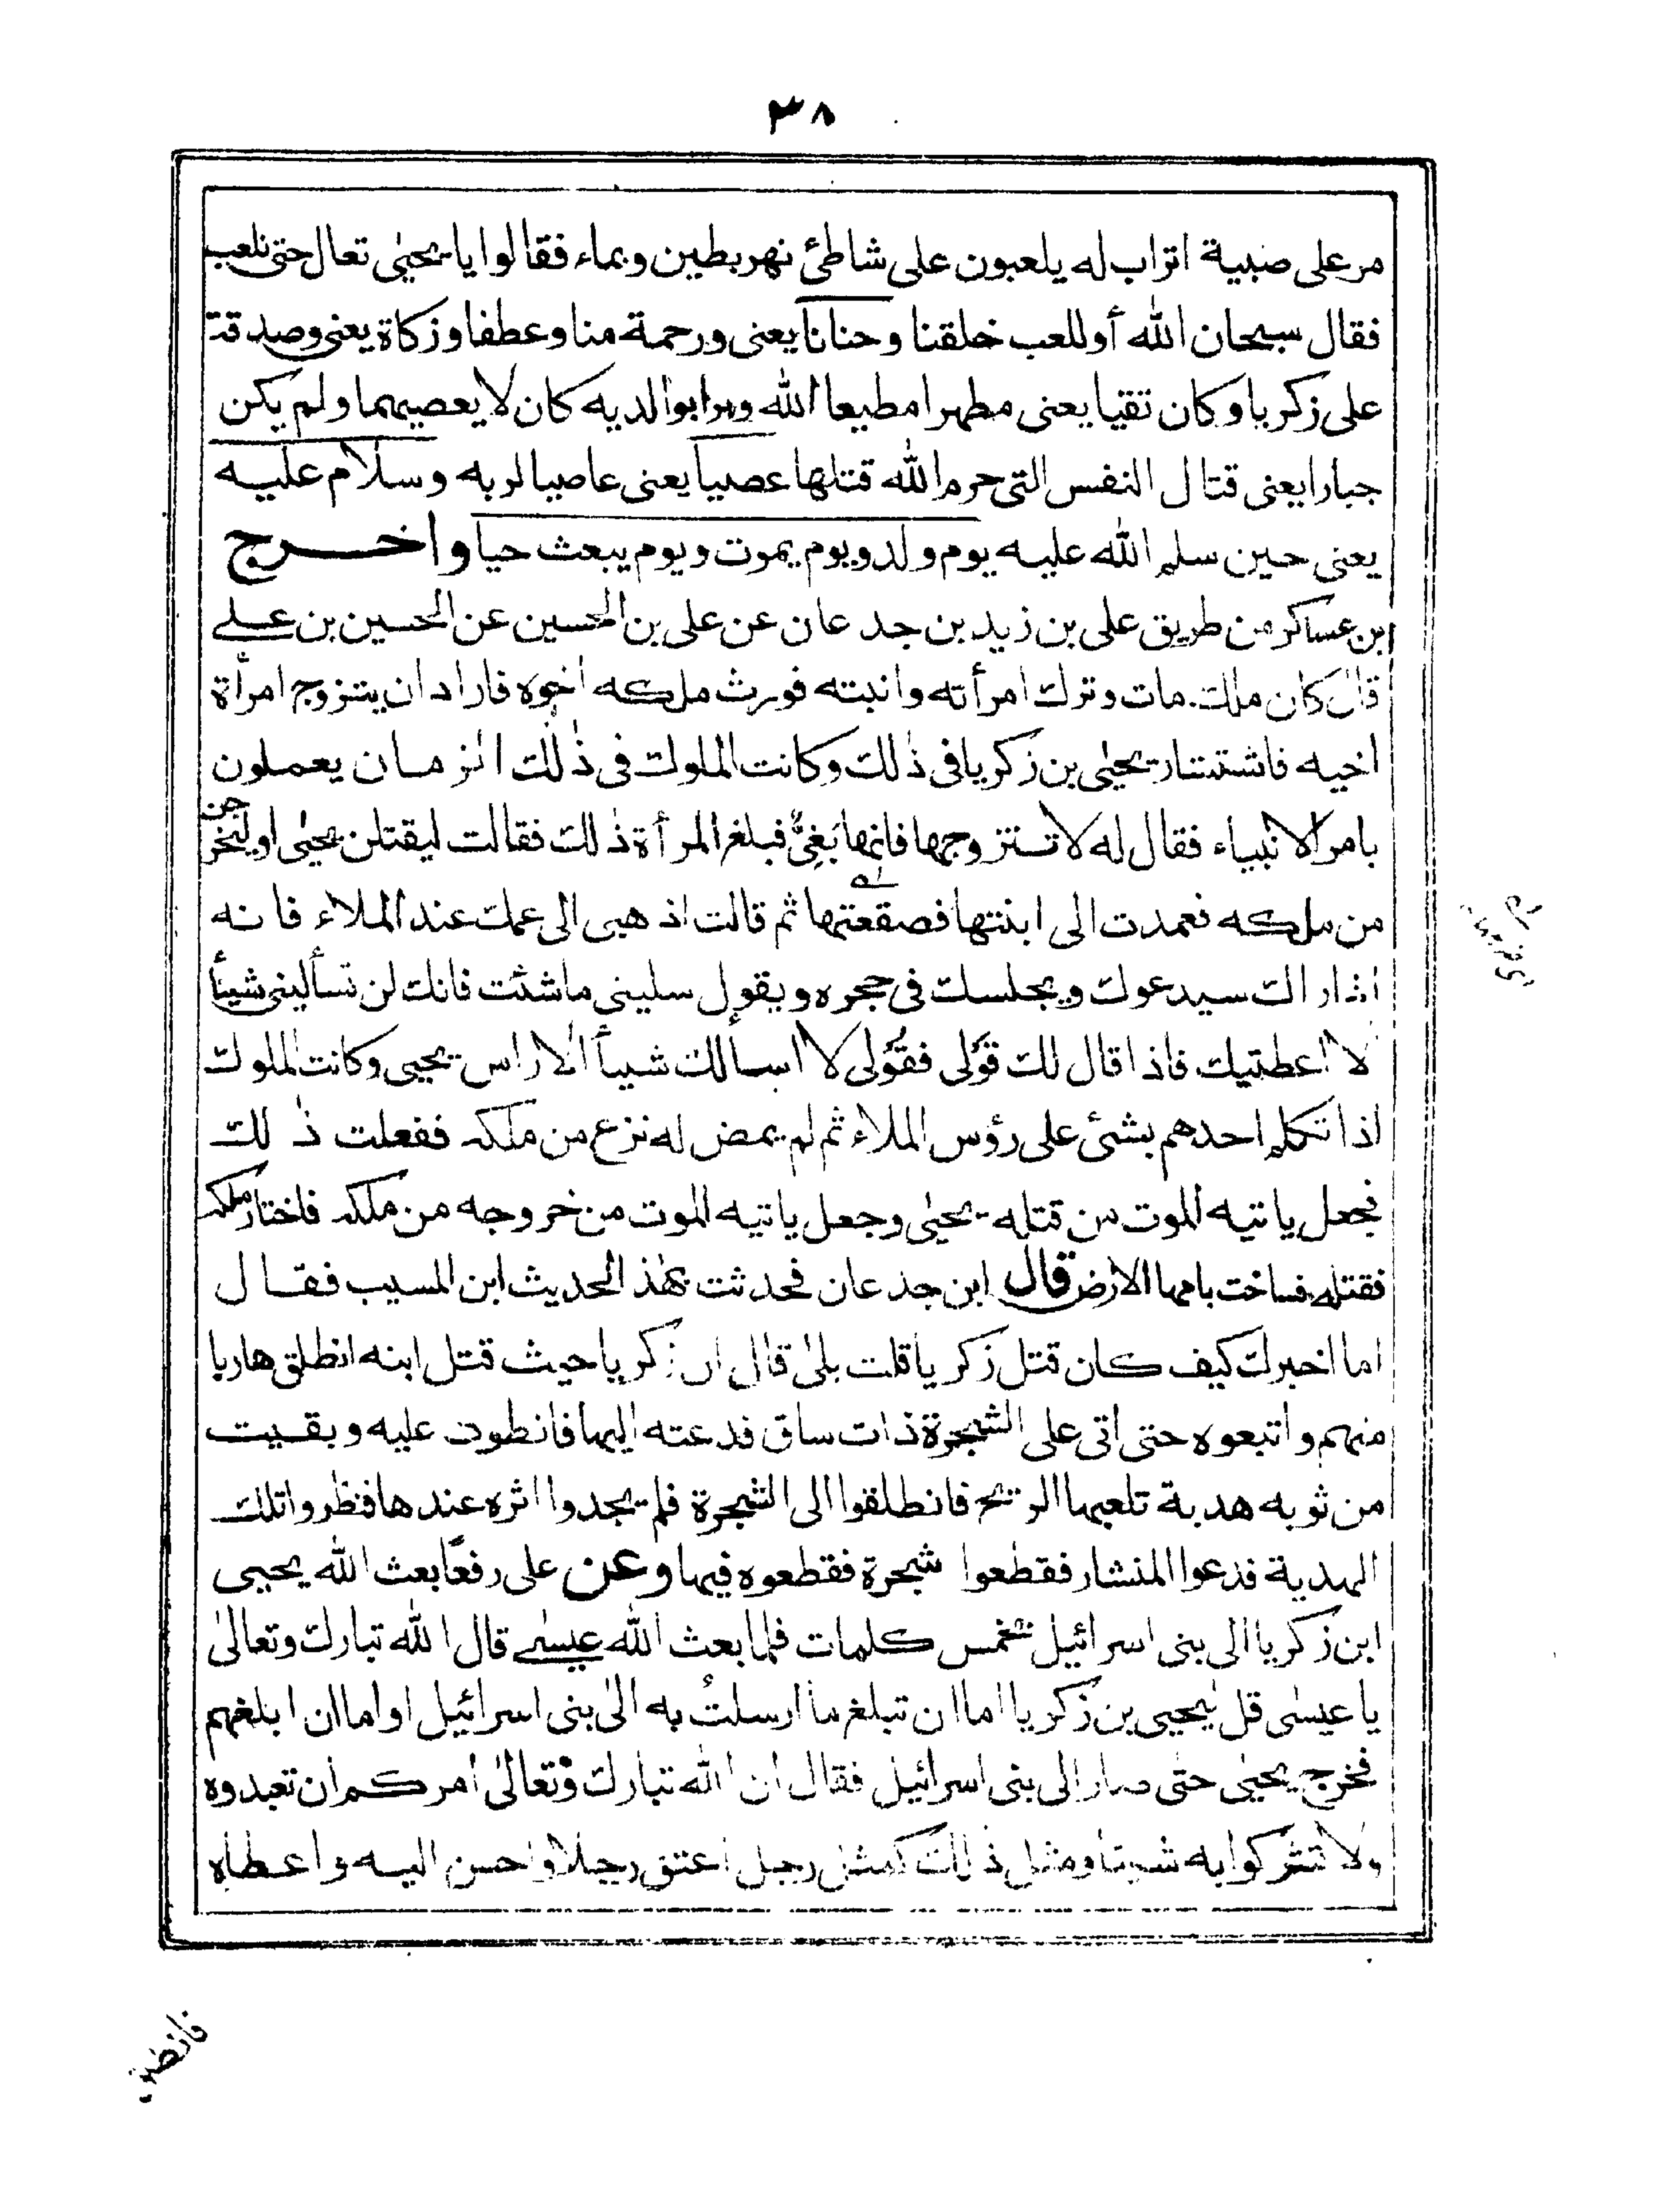 ٣٨
مر على صبية اتراب له يلعبون على شاطئ نهر بطين وبماء فقالوا يا يحيٰى تعال حتى نلعب
فقال سبحان الله أو للعب خلقنا وحنانا يعنى ورحمة منا وعطفا وزكاة يعنى وصدقة
على زكريا وكان تقيا يعنى مطهرا مطيعا الله وبرا بوالديه كان لا يعصيهما ولم يكن
جبارا يعنى قتال النفس التى حرم الله قتلها عصيا يعنى عاصيا لربه وسلام عليه
يعنى حين سلم الله عليه يوم ولد ويوم يموت ويوم يبعث حيا واخرج
ابن عساكر من طريق على بن زيد بن جدعان عن على بن الحسين عن الحسين بن على
قال كان ملك مات وترك امرأته وابنته فورث ملكه اخوه فاراد ان يتزوج امرأة
اخيه فاستشار يحيٰى بن زكريا فى ذٰلك وكانت الملوك فى ذٰلك الزمان يعملون
بامر الانبياء فقال له لا تتزوجها فانها بَغِىٌّ فبلغ المرأة ذٰلك فقالت ليقتلن يحيٰى او ليخرجن
من ملكه فعمدت الى ابنتها فصقعتها ثم قالت اذهبى الى عمك عند الملاء فانه
اذا راك سيدعوك ويجلسك فى حجره ويقول سلينى ما شئت فانك لن تسألينى شيئا
لا اعطيتيك فاذا قال لك قَوْلى فقُوْلى لا اسألك شيأ الا راس يحيى وكانت الملوك
اذا تكلم احدهم بشئ على رؤس الملاء ثم لم يمض له نزع من ملكه ففعلت ذٰلك
فجعل ياتيه الموت من قتله يحيٰى وجعل ياتيه الموت من خروجه من ملكه فاختار ملكه
فقتله فساخت بامها الارض قال ابن جدعان فحدثت بهٰذا الحديث ابن المسيب فقال
اما اخبرك كيف كان قتل زكريا قلت بلىٰ قال ان زكريا حيث قتل ابنه انطلق هاربا
منهم واتبعوه حتى اتى على الشجرة ذات ساق فدعته اليها فانطوت عليه وبقيت
من ثوبه هدبة تلعبها الريح فانطلقوا الى الشجرة فلم يجدوا اثره عندها فنظروا تلك
الهدبة فدعوا المنشار فقطعوا شجرة فقطعوه فيها وعن على رفعًا بعث الله يحيى
ابن زكريا الى بنى اسرائيل بخمس كلمات فلما بعث الله عيسىٰ قال الله تبارك وتعالىٰ
يا عيسٰى قل ليحيى بن زكريا اما ان تبلغ ما ارسلتُ به الىٰ بنى اسرائيل او اما ان ابلغهم
فخرج يحيٰى حتٰى صار الى بنى اسرائيل فقال ان الله تبارك وتعالىٰ امركم ان تعبدوه
ولا تشركوا به شيئا ومثل ذٰلك كمثل رجل اعتق رجلا واحسن اليه واعطاه
فانطلق